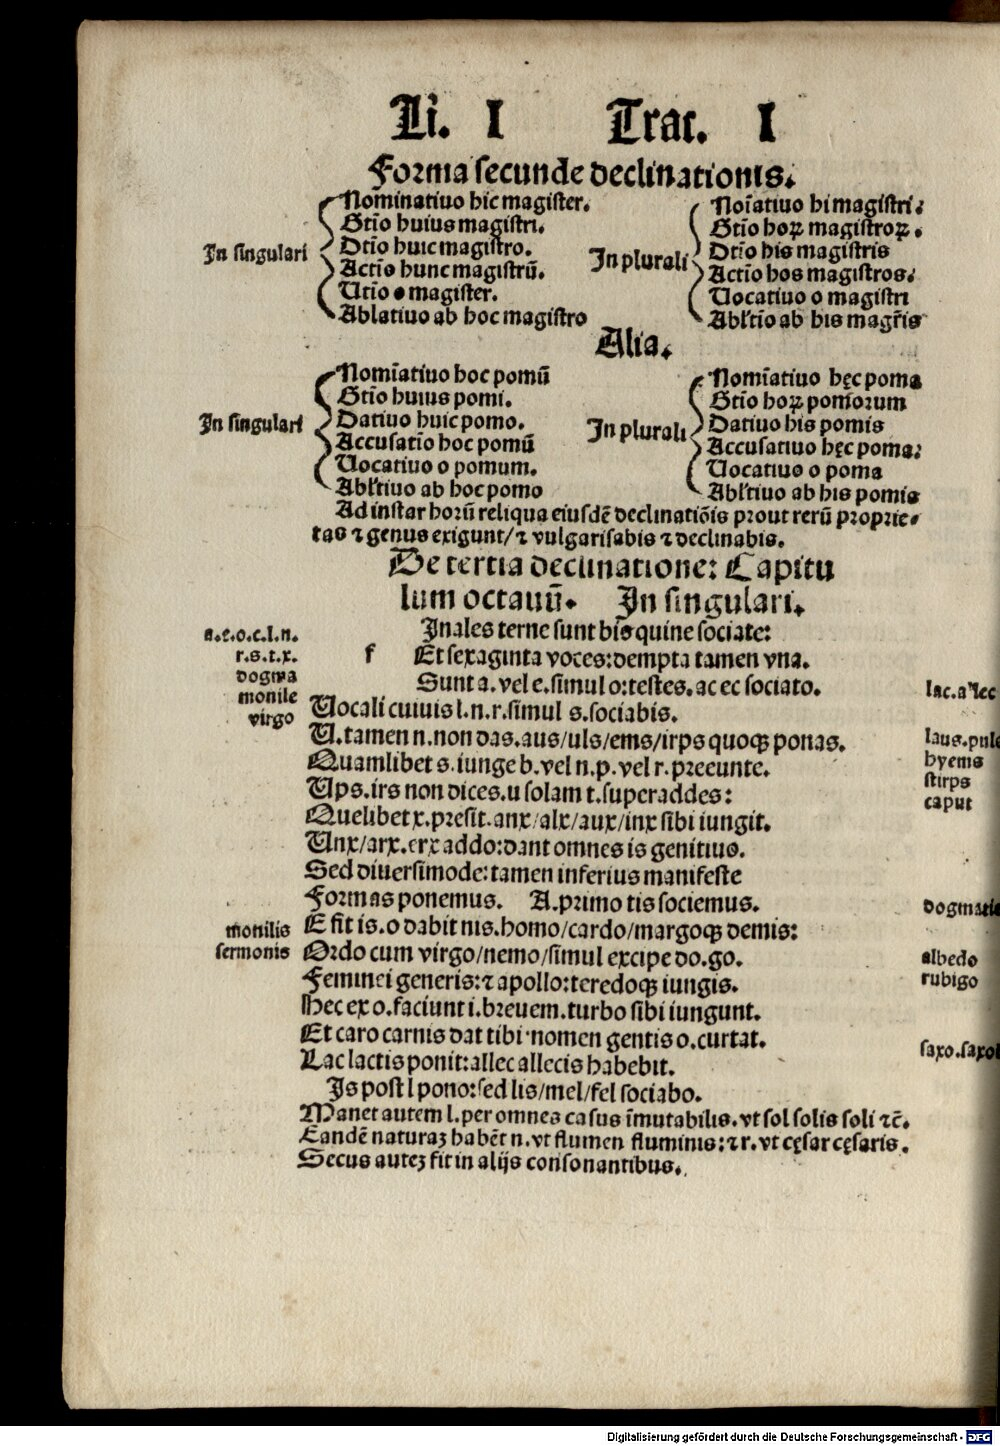 Li. I Trac. I
Forma secunde declinationis.
In singulari
Nominatiuo hic magister.
Gtīo huius magistri.
Dtīo huic magistro.
Actīo hunc magistrū.
Utīo o magister.
Ablatiuo ab hoc magistro
In plurali
Noīatiuo hi magistri:
Gtīo hoꝝ magistroꝝ.
Dtīo his magistris
Actīo hos magistros:
Uocatiuo o magistri
Abl'tīo ab his magr̄is
Alia.
In singulari
Nomīatiuo hoc pomū
Gtīo huius pomi.
Datiuo huic pomo.
Accusatīo hoc pomū
Uocatiuo o pomum.
Abl'tiuo ab hoc pomo
In plurali
Nomīatiuo hęc poma
Gtīo hoꝝ pomorum
Datiuo his pomis
Accusatiuo hęc poma:
Uocatiuo o poma
Abl'tiuo ab his pomis
Ad instar horū reliqua eiusdē declinatiōis prout rerū proprie-
tas ⁊ genus exigunt/⁊ vulgarisabis ⁊ declinabis.
De tertia declinatione: Capitu
lum octauū. In singulari.
a.e.o.c.l.n.
r.s.t.x.
dogma
monile
virgo
f
Inales terne sunt bis quine sociate:
Et sexaginta voces: dempta tamen vna.
Sunt a. vel e. simul o: testes. ac ec sociato.
lac. allec
Uocali cuiuis l.n.r. simul s. sociabis.
U. tamen n. non das. aus/uls/ems/irps quoqꝫ ponas.
laus. puls
Quamlibet s. iunge b. vel n.p. vel r. preeunte.
hyems
Ups. irs non dices. u solam t. superaddes:
stirps
caput
Quelibet x. presit. anx/alx/aux/inx sibi iungit.
Unx/arx. erx addo: dant omnes is genitius.
Sed diuersimode: tamen inferius manifeste
Formas ponemus. A. primo tis sociemus.
dogmatis
monilis
sermonis
E fit is. o dabit nis. homo/cardo/margoqꝫ demis:
Ordo cum virgo/nemo/simul excipe do. go.
albedo
rubigo
Feminei generis: ⁊ apollo: teredoqꝫ iungis.
Hec ex o. faciunt i. breuem. turbo sibi iungunt.
Et caro carnis dat tibi nomen gentis o. curtat.
saxo. saxoi
Lac lactis ponit: allec allecis habebit.
Is post l pono: sed lis/mel/fel sociabo.
Manet autem l. per omnes casus īmutabilis. vt sol solis soli ⁊c̄.
Eandē naturaꝫ habēt n. vt flumen fluminis: ⁊ r. vt cęsar cęsaris.
Secus auteꝫ fit in alijs consonantibus.
Digitalisierung gefördert durch die Deutsche Forschungsgemeinschaft - DFG